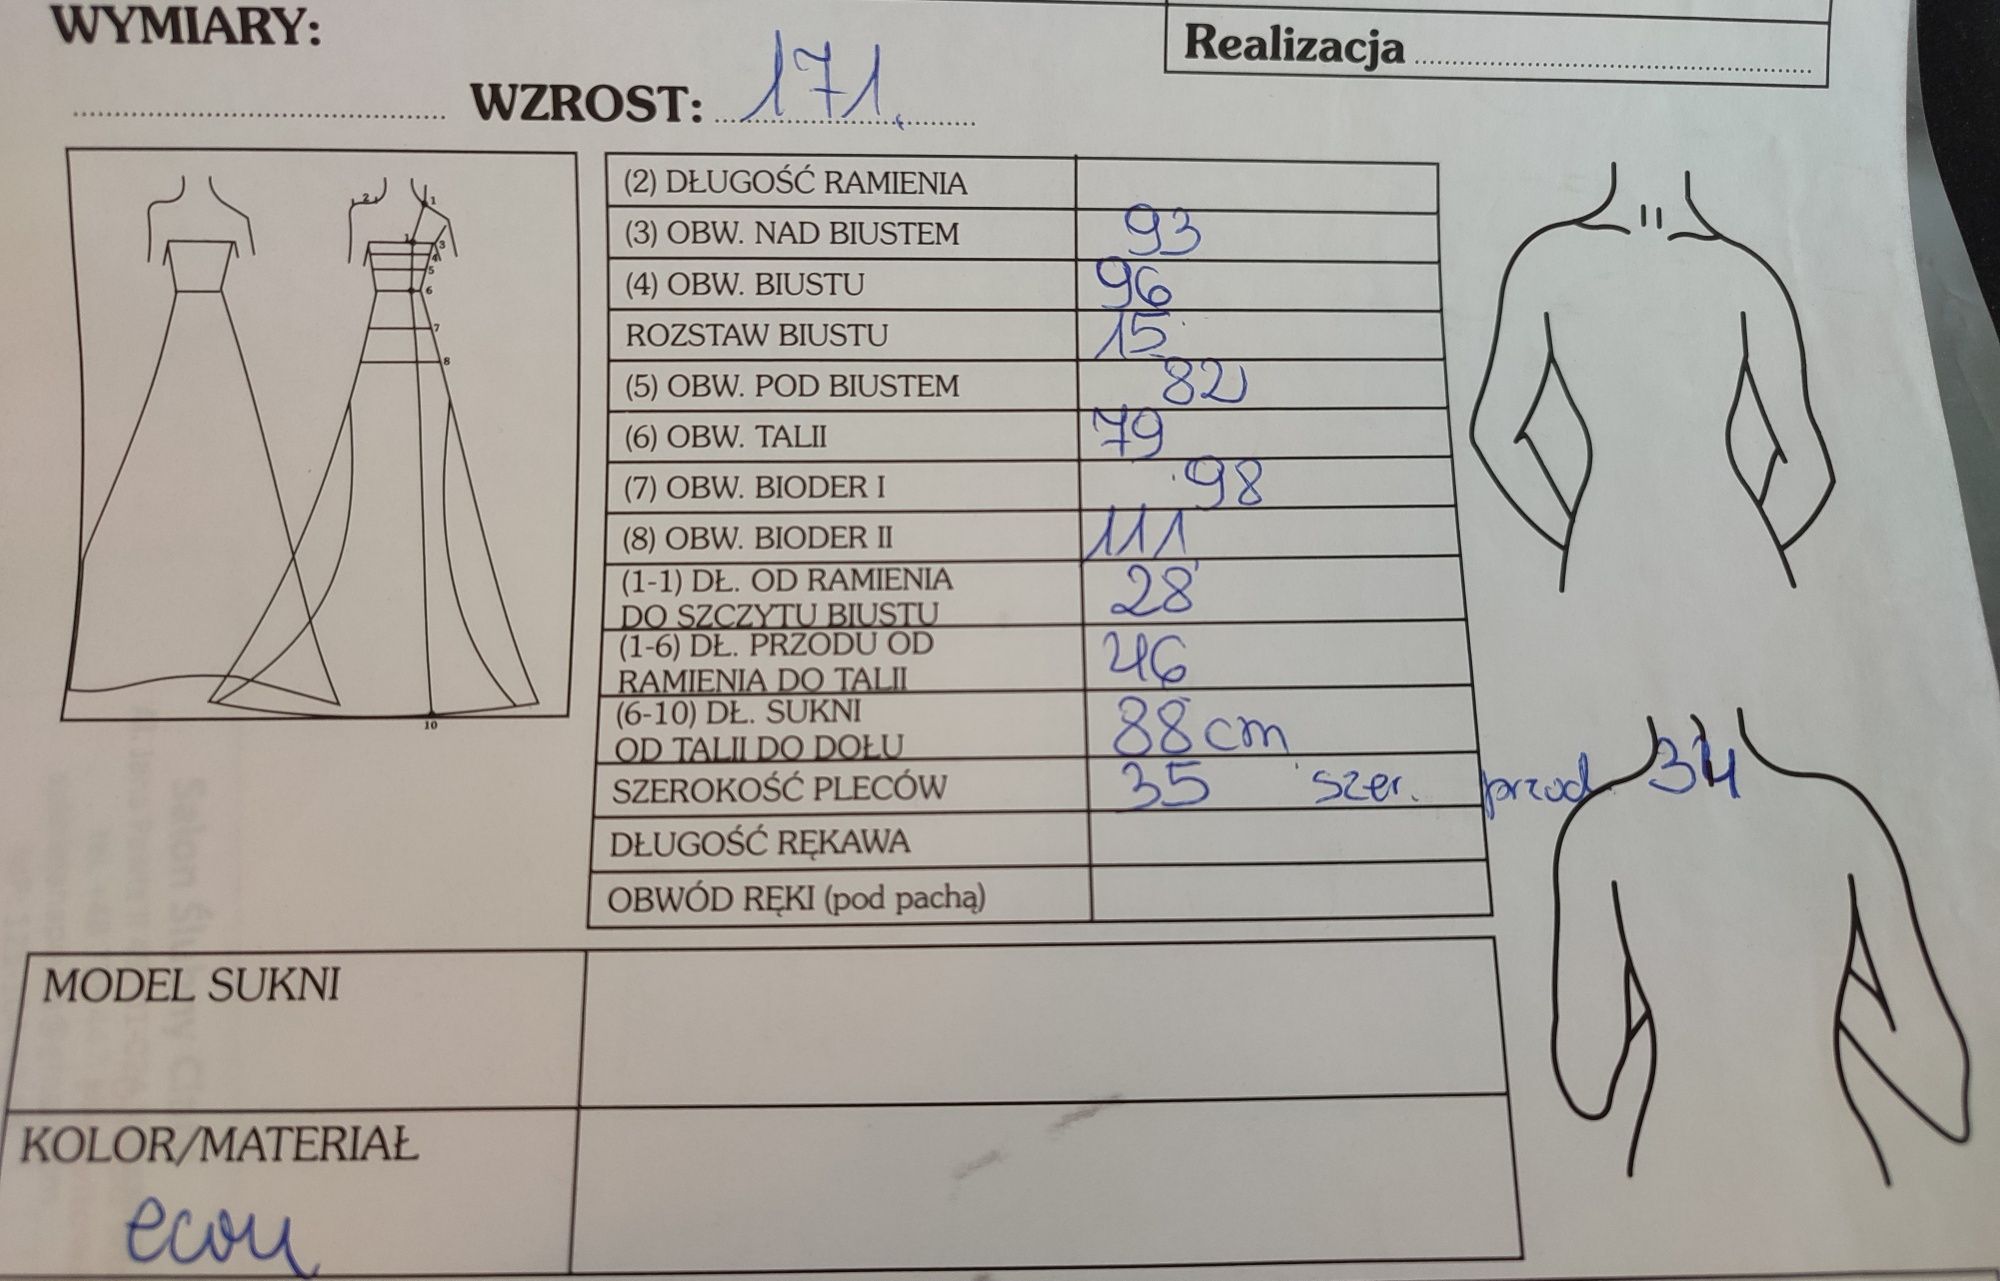 WYMIARY:
Realizacja
WZROST: 171.
(2) DŁUGOŚĆ RAMIENIA
(3) OBW. NAD BIUSTEM 93
(4) OBW. BIUSTU 96
ROZSTAW BIUSTU 15
(5) OBW. POD BIUSTEM 82
(6) OBW. TALII 79
(7) OBW. BIODER I 98
(8) OBW. BIODER II 111
(1-1) DŁ. OD RAMIENIA
DO SZCZYTU BIUSTU 28
(1-6) DŁ. PRZODU OD
RAMIENIA DO TALII 46
(6-10) DŁ. SUKNI
OD TALII DO DOŁU 88 cm
SZEROKOŚĆ PLECÓW 35 szer. przod 34
DŁUGOŚĆ RĘKAWA
OBWÓD RĘKI (pod pachą)
2 1
1 3
4
5
6
7
8
10
MODEL SUKNI
KOLOR/MATERIAŁ
ecru